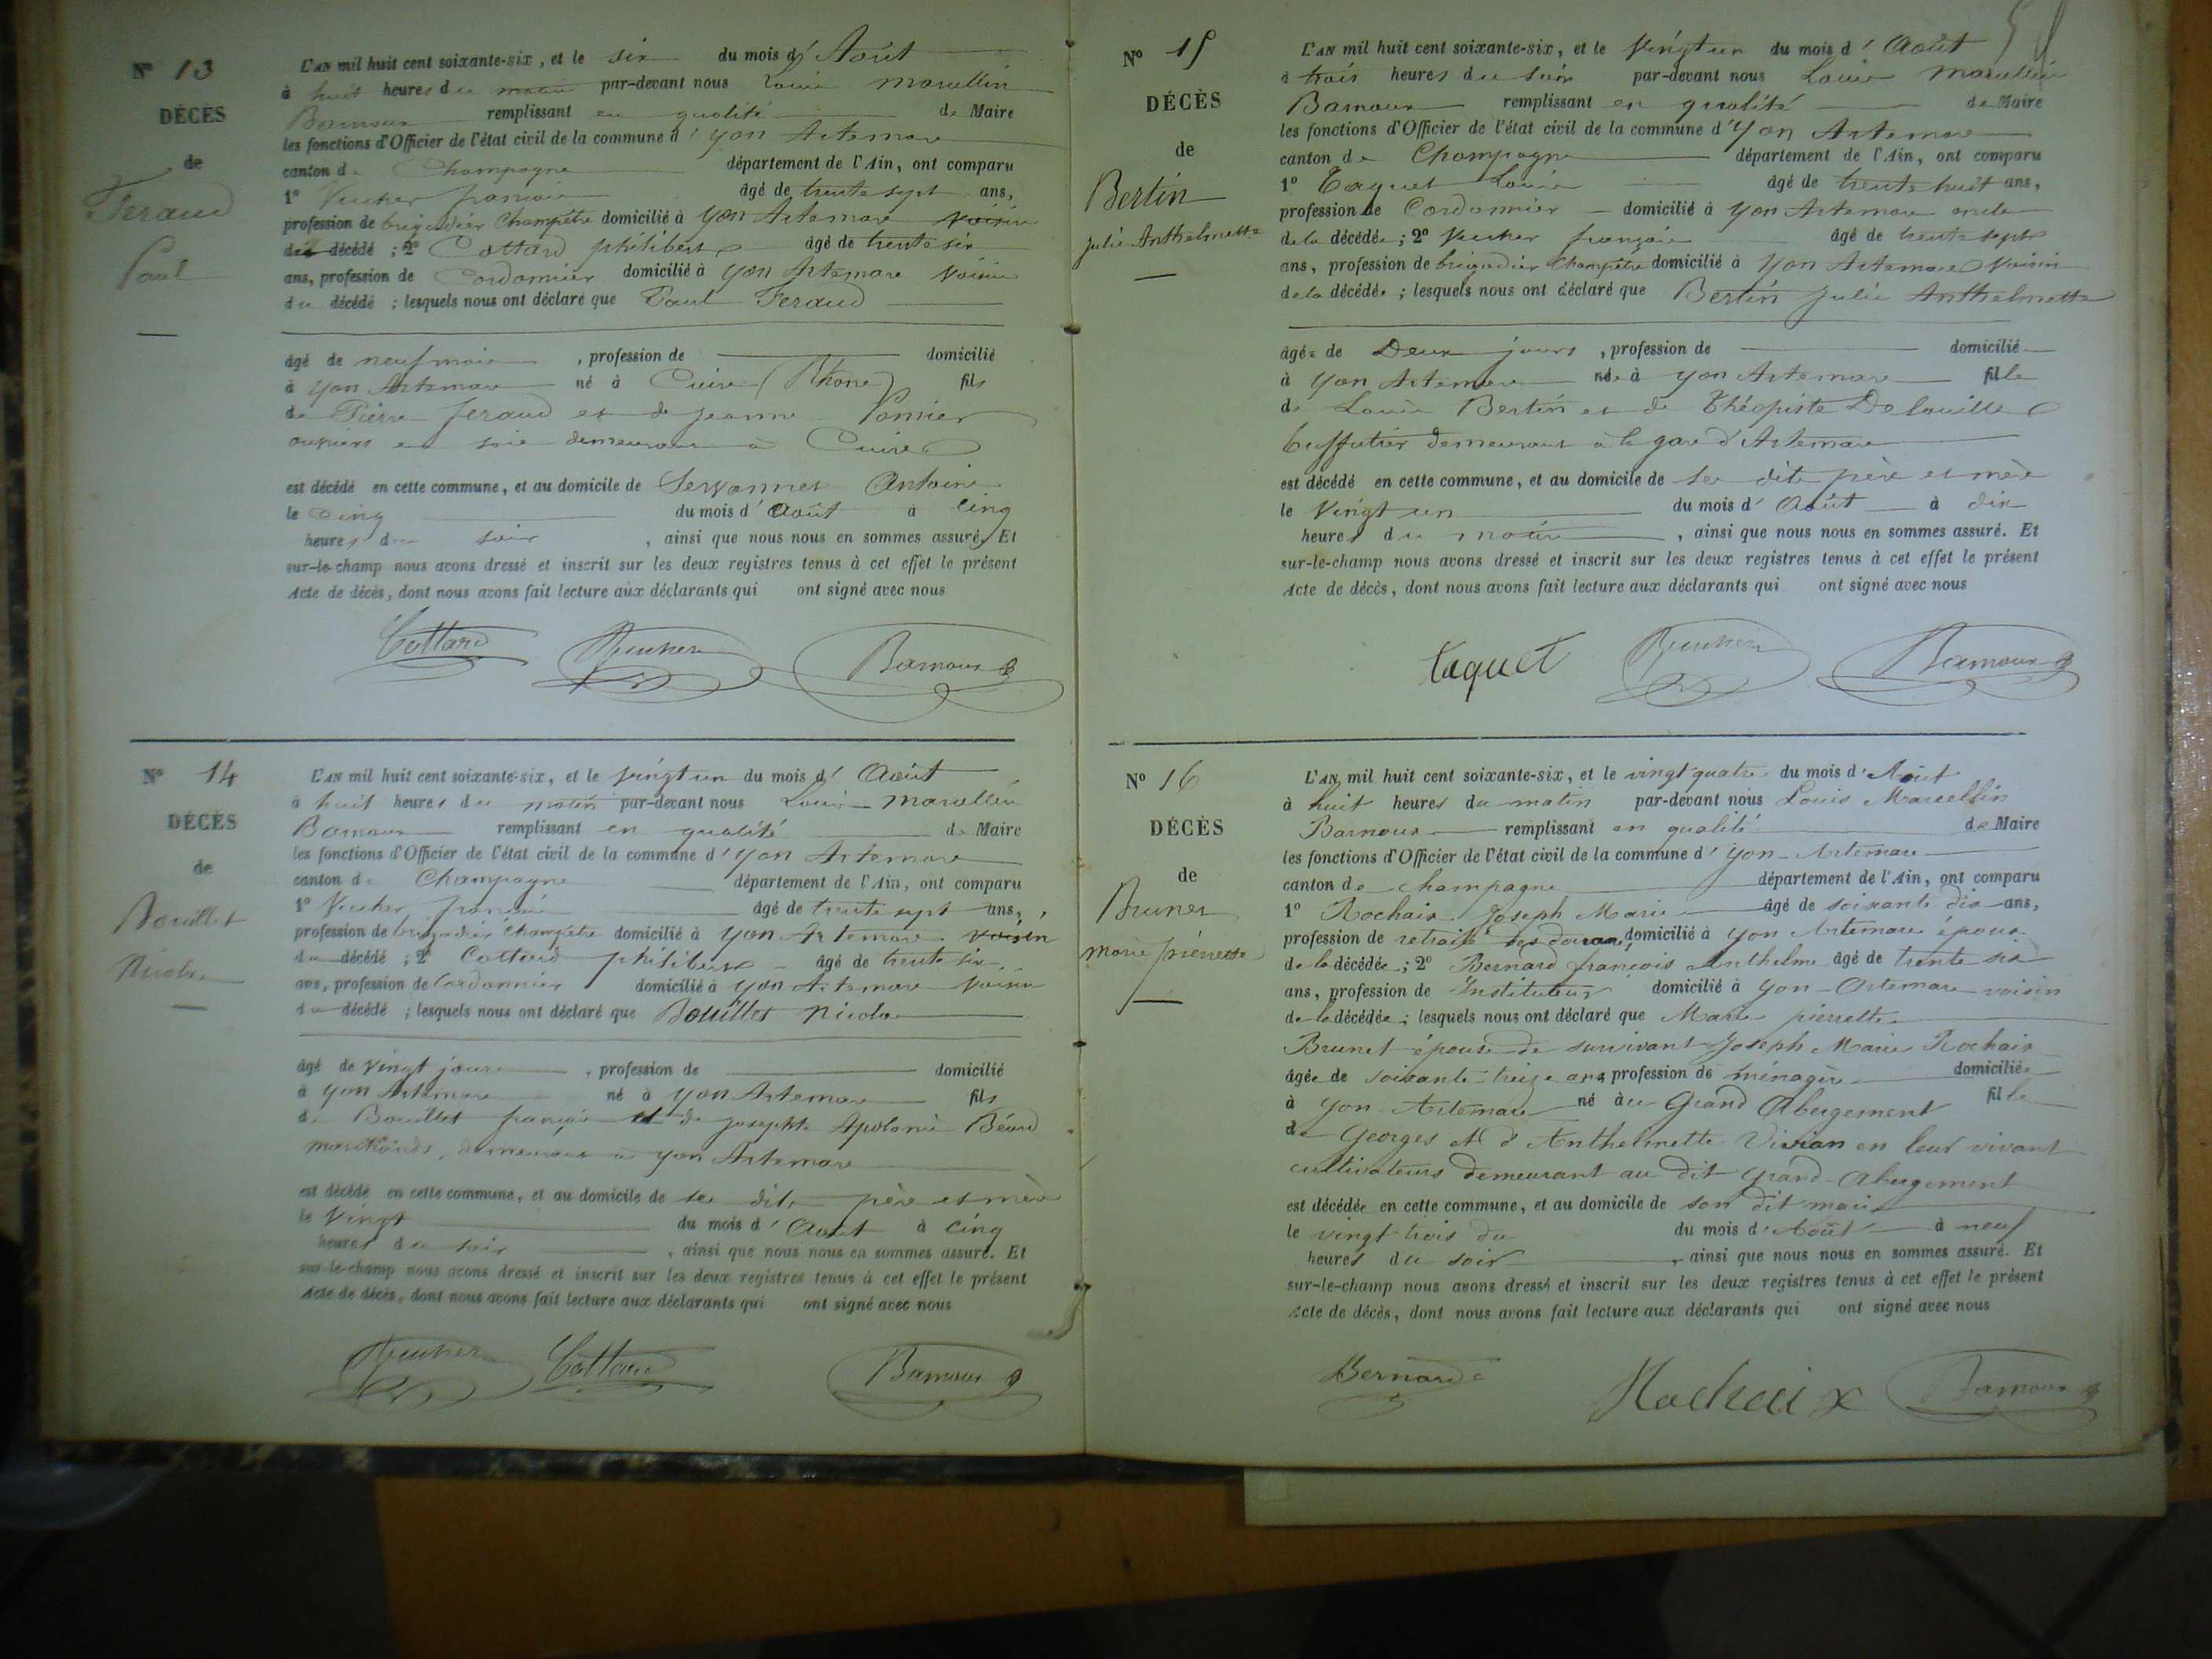 N° 13
DÉCÈS
de
Feraud
Paul
L'AN mil huit cent soixante-six, et le six du mois d'Août
à huit heures du matin par-devant nous Louis Marcellin
Barnoux remplissant en qualité de Maire
les fonctions d'Officier de l'état civil de la commune d'Yon Artemare
canton de Champagne département de l'Ain, ont comparu
1° Vucher françois âgé de trente sept ans,
profession de brigadier Champêtre domicilié à Yon Artemare voisin
du décédé ; 2° Cottard philibert âgé de trente six
ans, profession de Cordonnier domicilié à Yon Artemare voisin
du décédé ; lesquels nous ont déclaré que Paul Feraud
âgé de neuf mois , profession de domicilié
à Yon Artemare né à Cuire (Rhône) fils
de Pierre feraud et de jeanne
ouvriers en soie demeurant à Cuire
est décédé en cette commune, et au domicile de Antoine
le Cinq du mois d'Août à Cinq
heures du soir , ainsi que nous nous en sommes assuré. Et
sur-le-champ nous avons dressé et inscrit sur les deux registres tenus à cet effet le présent
Acte de décès, dont nous avons fait lecture aux déclarants qui ont signé avec nous
Cottard Vucher Barnoux
N° 14
DÉCÈS
de
Bouillet
Nicolas
L'AN mil huit cent soixante-six, et le vingt un du mois d'Août
à huit heures du matin par-devant nous Louis Marcellin
Barnoux remplissant en qualité de Maire
les fonctions d'Officier de l'état civil de la commune d'Yon Artemare
canton de Champagne département de l'Ain, ont comparu
1° Vucher françois âgé de trente sept ans,
profession de brigadier Champêtre domicilié à Yon Artemare voisin
du décédé ; 2° Cottard philibert âgé de trente six
ans, profession de Cordonnier domicilié à Yon Artemare voisin
du décédé ; lesquels nous ont déclaré que Bouillet Nicolas
âgé de vingt jours , profession de domicilié
à Yon Artemare né à Yon Artemare fils
de Bouillet françois et de josephte Apolonie Béard
marchands, demeurant à Yon Artemare
est décédé en cette commune, et au domicile de ses dits père et mère
le vingt du mois d'Août à cinq
heures du soir , ainsi que nous nous en sommes assuré. Et
sur-le-champ nous avons dressé et inscrit sur les deux registres tenus à cet effet le présent
Acte de décès, dont nous avons fait lecture aux déclarants qui ont signé avec nous
Vucher Cottard Barnoux
N° 15
DÉCÈS
de
Bertin
Julie Anthelmette
L'AN mil huit cent soixante-six, et le vingt un du mois d'Août
à trois heures du soir par-devant nous Louis Marcellin
Barnoux remplissant en qualité de Maire
les fonctions d'Officier de l'état civil de la commune d'Yon Artemare
canton de Champagne département de l'Ain, ont comparu
1° Taquet Louis âgé de trente huit ans,
profession de Cordonnier domicilié à Yon Artemare oncle
de la décédée ; 2° Vucher françois âgé de trente sept
ans, profession de brigadier Champêtre domicilié à Yon Artemare voisin
de la décédée ; lesquels nous ont déclaré que Bertin Julie Anthelmette
âgée de Deux jours , profession de domicilié
à Yon Artemare née à Yon Artemare fille
de Louis Bertin et de Théopiste Delouille
buffetier demeurant à la gare d'Artemare
est décédé en cette commune, et au domicile de ses dits père et mère
le vingt un du mois d'Août à dix
heures du matin , ainsi que nous nous en sommes assuré. Et
sur-le-champ nous avons dressé et inscrit sur les deux registres tenus à cet effet le présent
Acte de décès, dont nous avons fait lecture aux déclarants qui ont signé avec nous
taquet Vucher Barnoux
N° 16
DÉCÈS
de
Brunet
Marie pierrette
L'AN mil huit cent soixante-six, et le vingt quatre du mois d'Août
à huit heures du matin par-devant nous Louis Marcellin
Barnoux remplissant en qualité de Maire
les fonctions d'Officier de l'état civil de la commune d'Yon-Artemare
canton de champagne département de l'Ain, ont comparu
1° Rochaix Joseph Marie âgé de soixante dix ans,
profession de retraité des douanes domicilié à Yon Artemare époux
de la décédée ; 2° Bernard françois Anthelme âgé de trente six
ans, profession de Instituteur domicilié à Yon-Artemare voisin
de la décédée ; lesquels nous ont déclaré que Marie pierrette
Brunet épouse de survivant Joseph Marie Rochaix
âgée de soixante-treize ans profession de ménagère domiciliée
à Yon-Artemare né au Grand Abergement fille
de Georges et d'Anthelmette Vivian en leur vivant
cultivateurs demeurant au dit Grand-Abergement
est décédée en cette commune, et au domicile de son dit mari
le vingt trois du du mois d'Août à neuf
heures du soir , ainsi que nous nous en sommes assuré. Et
sur-le-champ nous avons dressé et inscrit sur les deux registres tenus à cet effet le présent
Acte de décès, dont nous avons fait lecture aux déclarants qui ont signé avec nous
Bernard Rochaix Barnoux